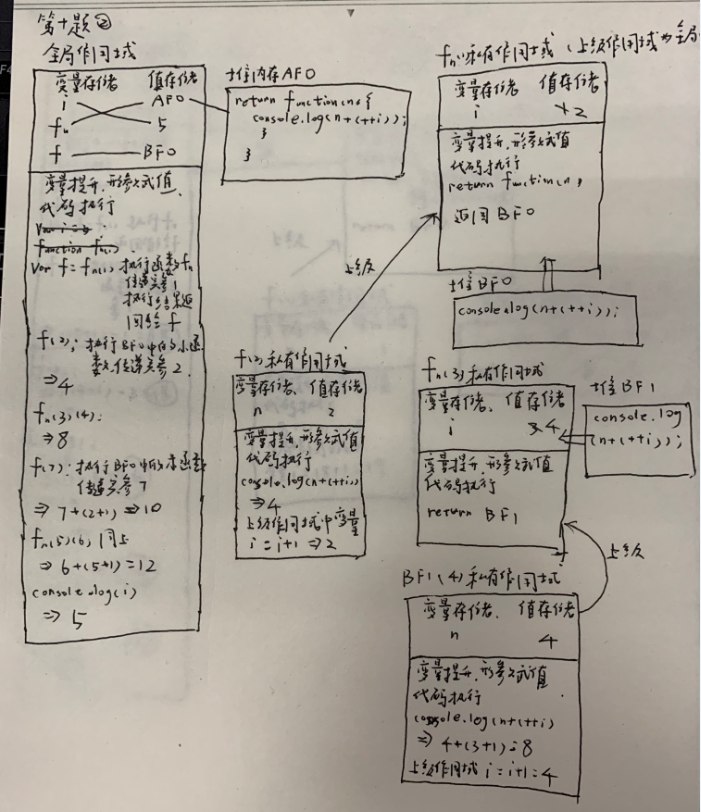 第十题②
全局作用域
变量存储 值存储
i AF0
fn 5
f BF0
变量提升,形参赋值,
代码执行
var i=5
function fn(i)
var f=fn(1) 执行函数fn
传递实参1
执行结果返
回给f
f(2);执行BF0中的小函
数,传递实参2.
⇒4
fn(3)(4);
⇒8
f(7);执行BF0中的小函数
传递实参7
⇒7+(2+1)⇒10
fn(5)(6) 同上
⇒6+(5+1)=12
console.log(i)
⇒5
堆内存AF0
return function(n){
console.log(n+(++i));
}
}
fn(1)私有作用域(上级作用域为全局
变量存储 值存储
i 1 2
变量提升,形参赋值
代码执行
return function(n)
返回BF0
上级
堆BF0
console.log(n+(++i));
f(2)私有作用域
变量存储、值存储
n 2
变量提升,形参赋值
代码执行
console.log(n+(++i))
⇒4
上级作用域中变量
i=i+1⇒2
fn(3)私有作用域
变量存储、值存储
i 3 4
变量提升,形参赋值
代码执行
return BF1
堆BF1
console.log
(n+(++i));
上级
BF1(4)私有作用域
变量存储、值存储
n 4
变量提升,形参赋值
代码执行
console.log(n+(++i)
⇒4+(3+1)=8
上级作用域i=i+1=4